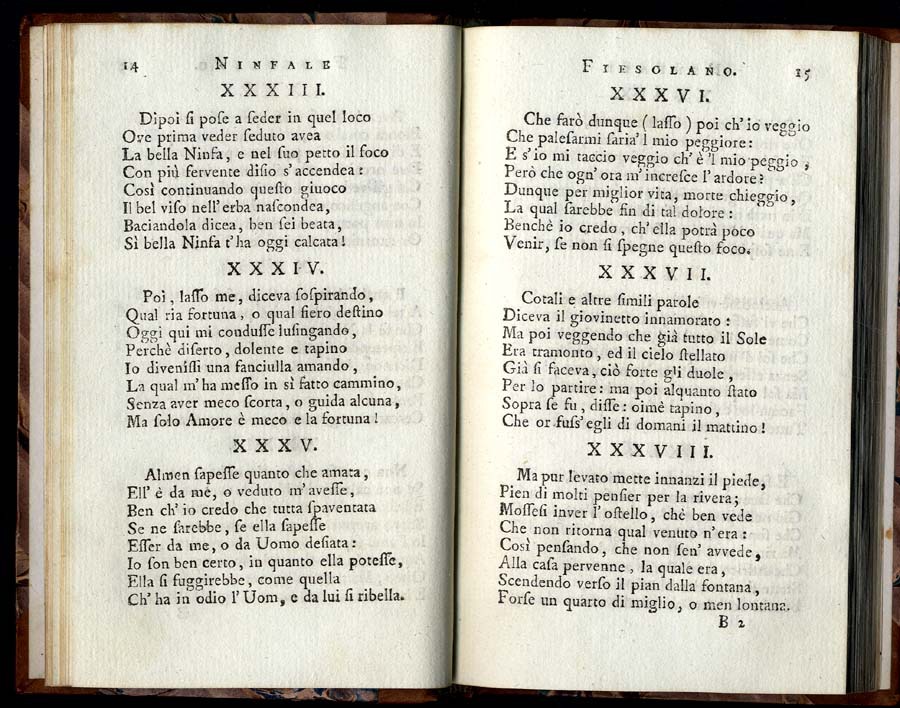 14 NINFALE
XXXIII.
Dipoi ſi poſe a ſeder in quel loco
Ove prima veder ſeduto avea
La bella Ninfa, e nel ſuo petto il foco
Con più fervente diſio s'accendea:
Così continuando queſto giuoco
Il bel viſo nell'erba naſcondea,
Baciandola dicea, ben ſei beata,
Sì bella Ninfa t'ha oggi calcata!
XXXIV.
Poi, laſſo me, diceva ſoſpirando,
Qual ria fortuna, o qual fiero deſtino
Oggi qui mi conduſſe luſingando,
Perchè diſerto, dolente e tapino
Io diveniſſi una fanciulla amando,
La qual m'ha meſſo in sì fatto cammino,
Senza aver meco ſcorta, o guida alcuna,
Ma ſolo Amore è meco e la fortuna!
XXXV.
Almen ſapeſſe quanto che amata,
Ell' è da me, o veduto m'aveſſe,
Ben ch' io credo che tutta ſpaventata
Se ne ſarebbe, ſe ella ſapeſſe
Eſſer da me, o da Uomo deſiata:
Io ſon ben certo, in quanto ella poteſſe,
Ella ſi fuggirebbe, come quella
Ch' ha in odio l' Uom, e da lui ſi ribella.
FIESOLANO. 15
XXXVI.
Che farò dunque ( laſſo ) poi ch' io veggio
Che paleſarmi ſaria' l mio peggiore:
E s' io mi taccio veggio ch' è 'l mio peggio,
Però che ogn' ora m' increſce l' ardore?
Dunque per miglior vita, morte chieggio,
La qual ſarebbe fin di tal dolore:
Benchè io credo, ch' ella potrà poco
Venir, ſe non ſi ſpegne queſto foco.
XXXVII.
Cotali e altre ſimili parole
Diceva il giovinetto innamorato:
Ma poi veggendo che già tutto il Sole
Era tramonto, ed il cielo ſtellato
Già ſi faceva, ciò forte gli duole,
Per lo partire: ma poi alquanto ſtato
Sopra ſe fu, diſſe: oimè tapino,
Che or fuſs' egli di domani il mattino!
XXXVIII.
Ma pur levato mette innanzi il piede,
Pien di molti penſier per la rivera;
Moſſeſi inver l' oſtello, chè ben vede
Che non ritorna qual venuto n' era:
Così penſando, che non ſen' avvede,
Alla caſa pervenne, la quale era,
Scendendo verſo il pian dalla fontana,
Forſe un quarto di miglio, o men lontana.
B 2